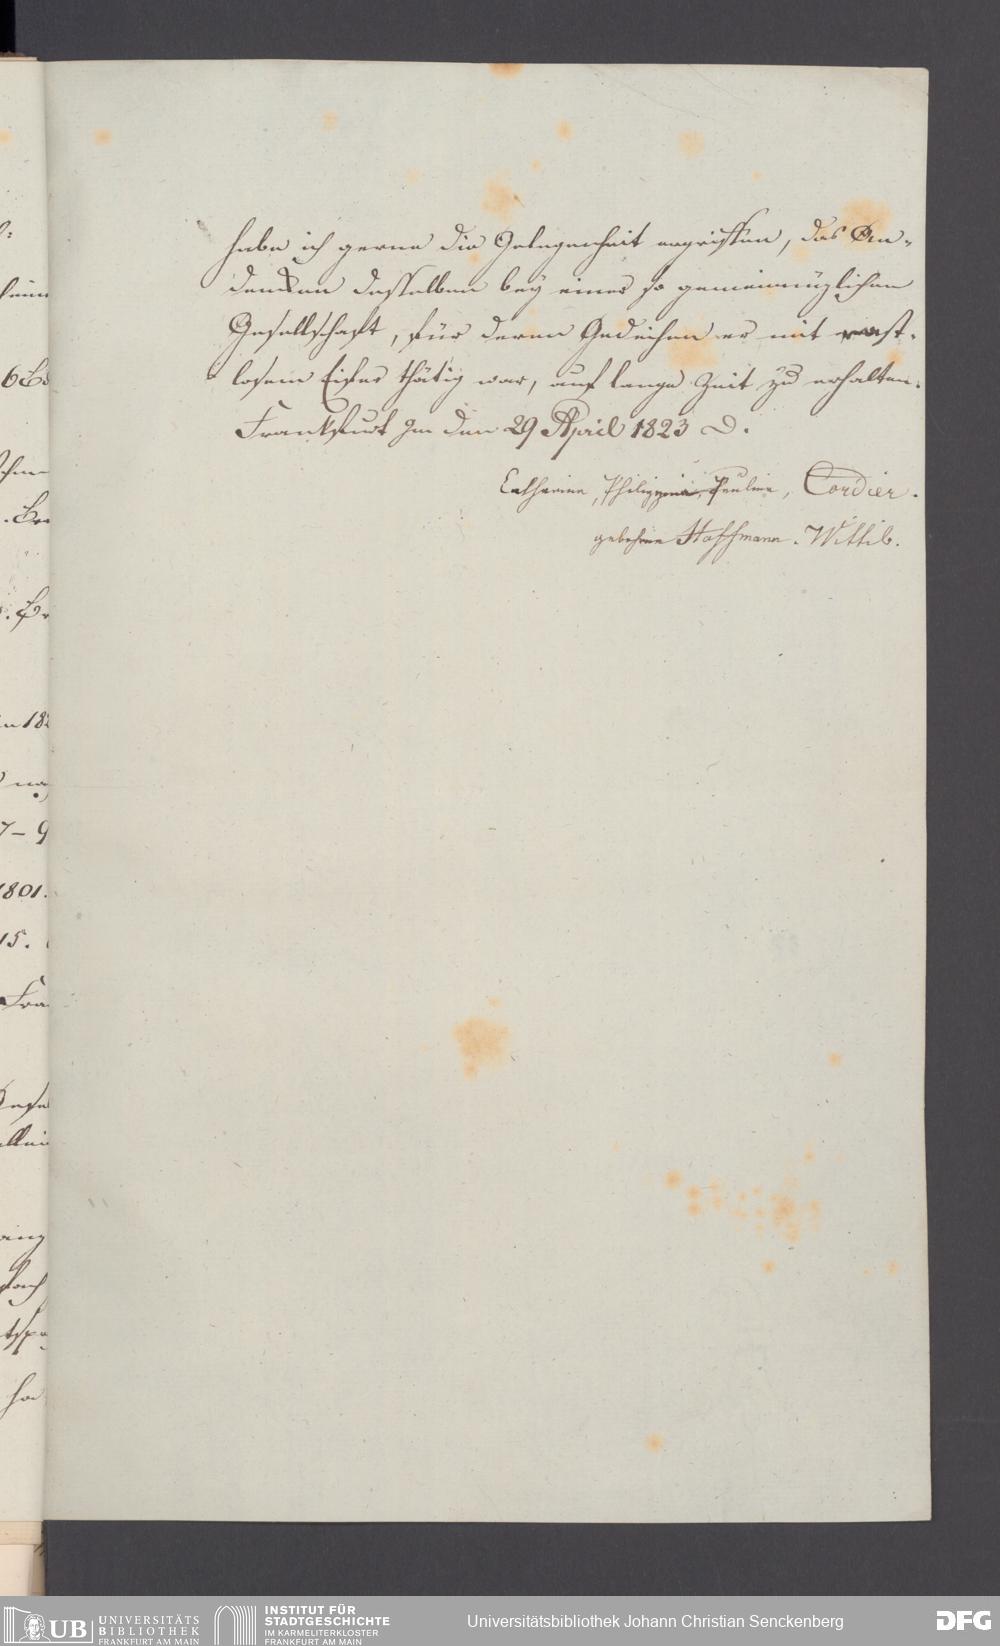 habe ich gerne die Gelegenheit ergriffen, das An-
denken desselben bey einer so gemeinnüzlichen
Gesellschaft, für deren Gedeihen er mit rast-
losem Eifer thätig war, auf lange Zeit zu erhalten.
Frankfurt den 29 April 1823
Catharina, Philippina, Paulina, Cordier.
gebohrne Hoffmann. Wittib.
6
n 18
7 – 9
1801.
15.
Fra
UB UNIVERSITÄTS
BIBLIOTHEK
FRANKFURT AM MAIN
INSTITUT FÜR
STADTGESCHICHTE
IM KARMELITERKLOSTER
FRANKFURT AM MAIN
Universitätsbibliothek Johann Christian Senckenberg
DFG